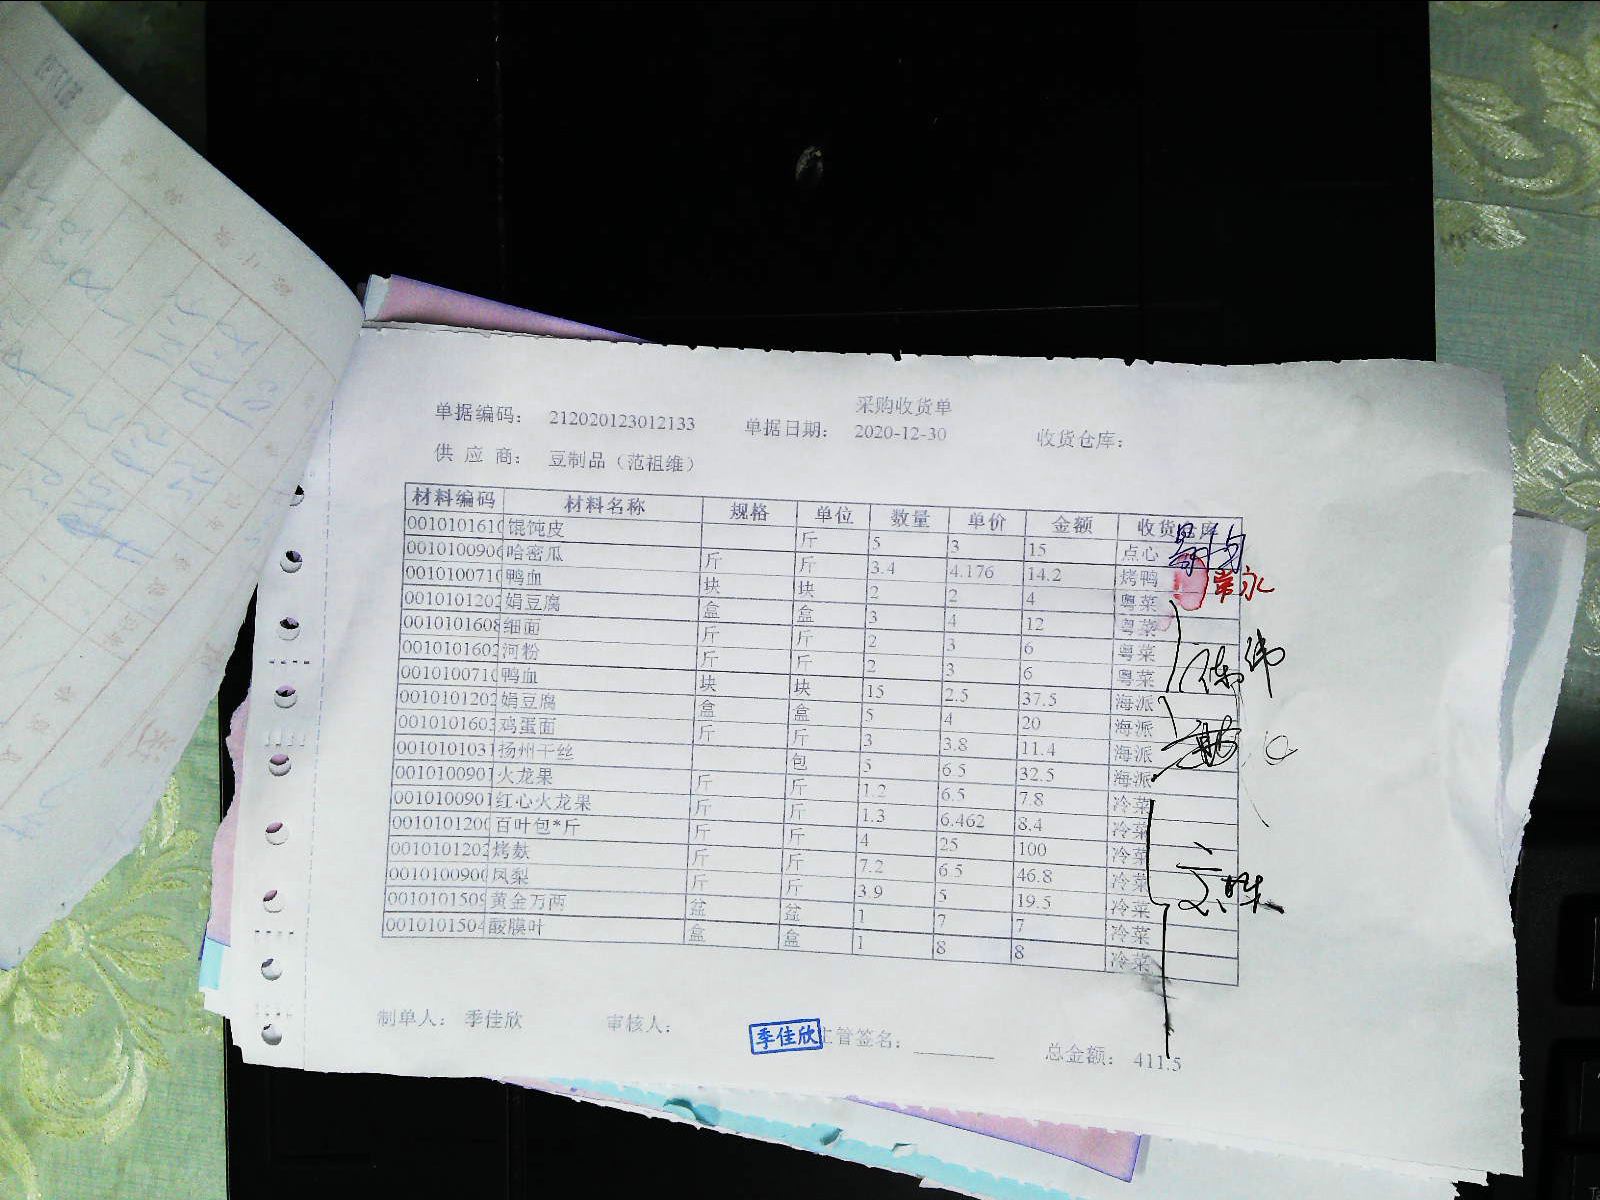 采购收货单
单据编码： 212020123012133 单据日期： 2020-12-30 收货仓库：
供 应 商： 豆制品（范祖维）
材料编码 材料名称 规格 单位 数量 单价 金额 收货仓库
001010161 馄饨皮 斤 5 3 15 点心
001010090 哈密瓜 斤 斤 3.4 4.176 14.2 烤鸭
001010071 鸭血 块 块 2 2 4 粤菜
001010120 娟豆腐 盒 盒 3 4 12 粤菜
0010101608 细面 斤 斤 2 3 6 粤菜
001010160 河粉 斤 斤 2 3 6 粤菜
001010071 鸭血 块 块 15 2.5 37.5 海派
001010120 娟豆腐 盒 盒 5 4 20 海派
001010160 鸡蛋面 斤 斤 3 3.8 11.4 海派
001010103 扬州干丝 包 5 6.5 32.5 海派
001010090 火龙果 斤 斤 1.2 6.5 7.8 冷菜
001010090 红心火龙果 斤 斤 1.3 6.462 8.4 冷菜
001010120 百叶包*斤 斤 斤 4 25 100 冷菜
001010120 烤麸 斤 斤 7.2 6.5 46.8 冷菜
001010090 凤梨 斤 斤 3.9 5 19.5 冷菜
001010150 黄金万两 盆 盆 1 7 7 冷菜
001010150 酸膜叶 盒 盒 1 8 8 冷菜
制单人： 季佳欣 审核人： 季佳欣 主管签名： 总金额： 411.5